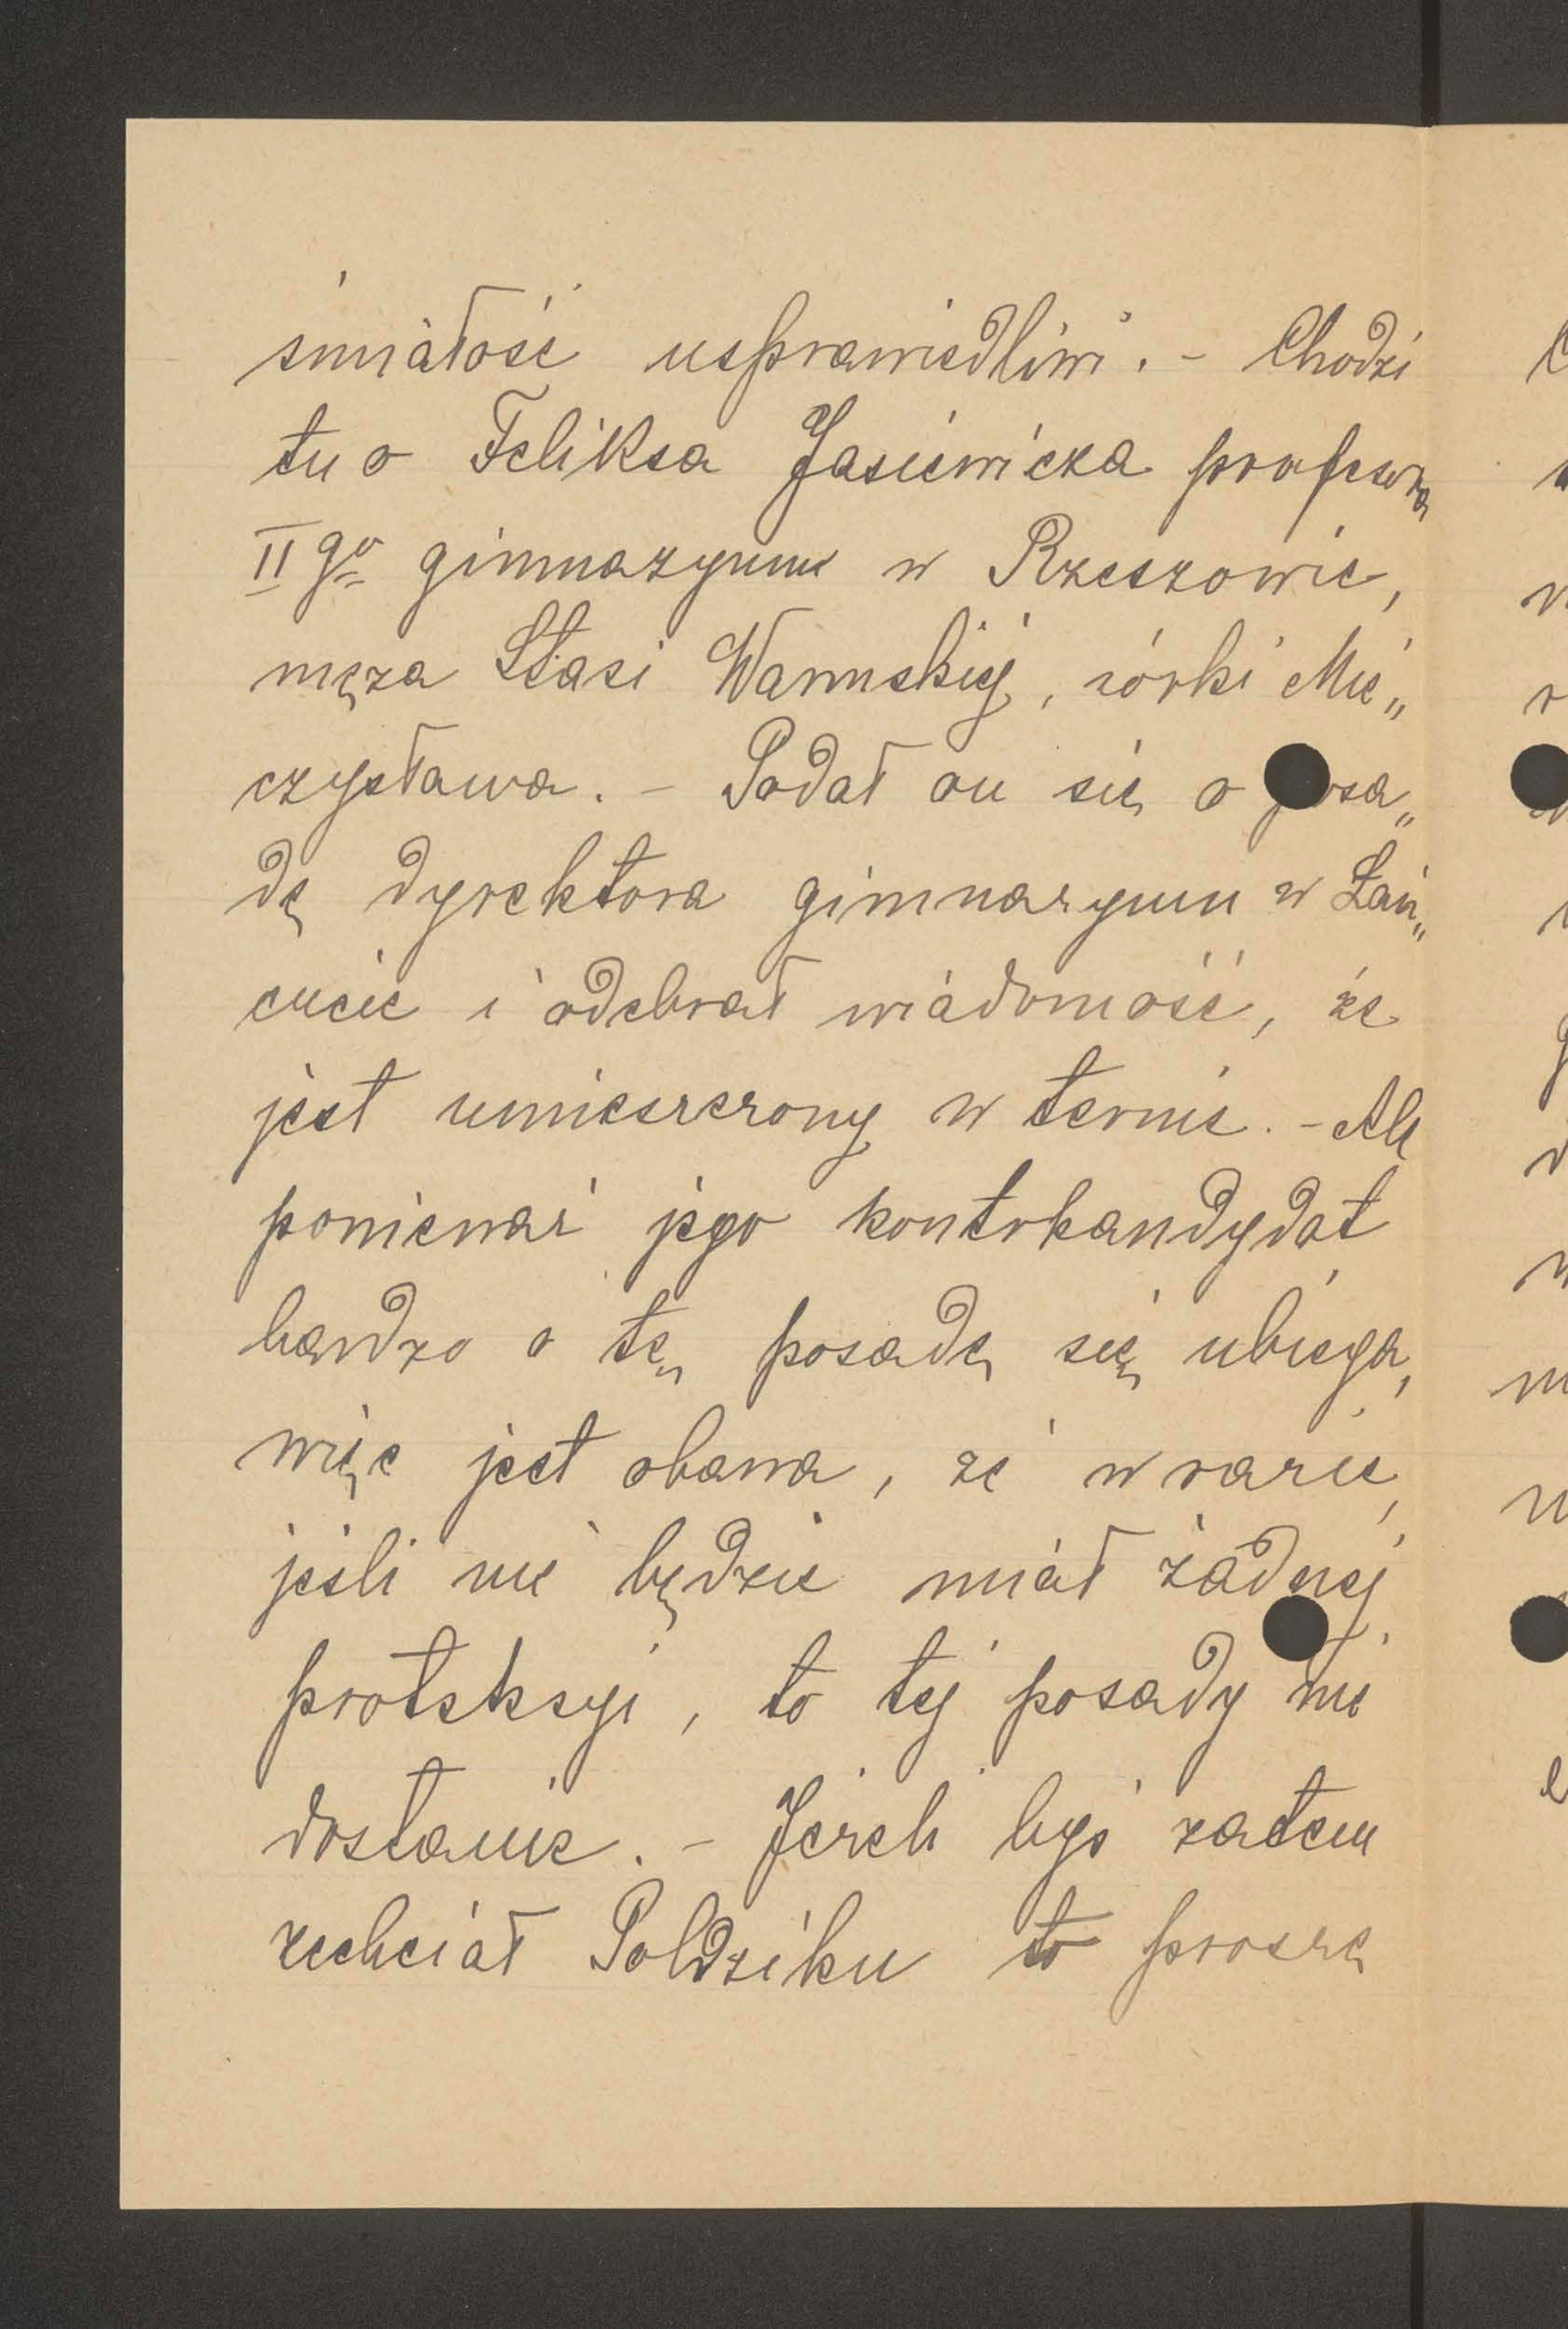 śmiałość usprawiedliwi. - Chodzi
tu o Feliksa Jasiewicza profesora
II go gimnazyum w Rzeszowie,
męża Stasi
córki Mie„
czysława. - Podał on się o posa„
dę dyrektora gimnazyum w Łań„
cucie i odebrał wiadomość, że
jest umieszczony w ternie. - Ale
ponieważ jego kontrkandydat
bardzo o tę posadę się ubiega,
więc jest obawa, że w razie,
jeśli nie będzie miał żadnej
protekcyi, to tej posady nie
dostanie. - Jeżeli byś zatem
zechciał Poldziku to proszę